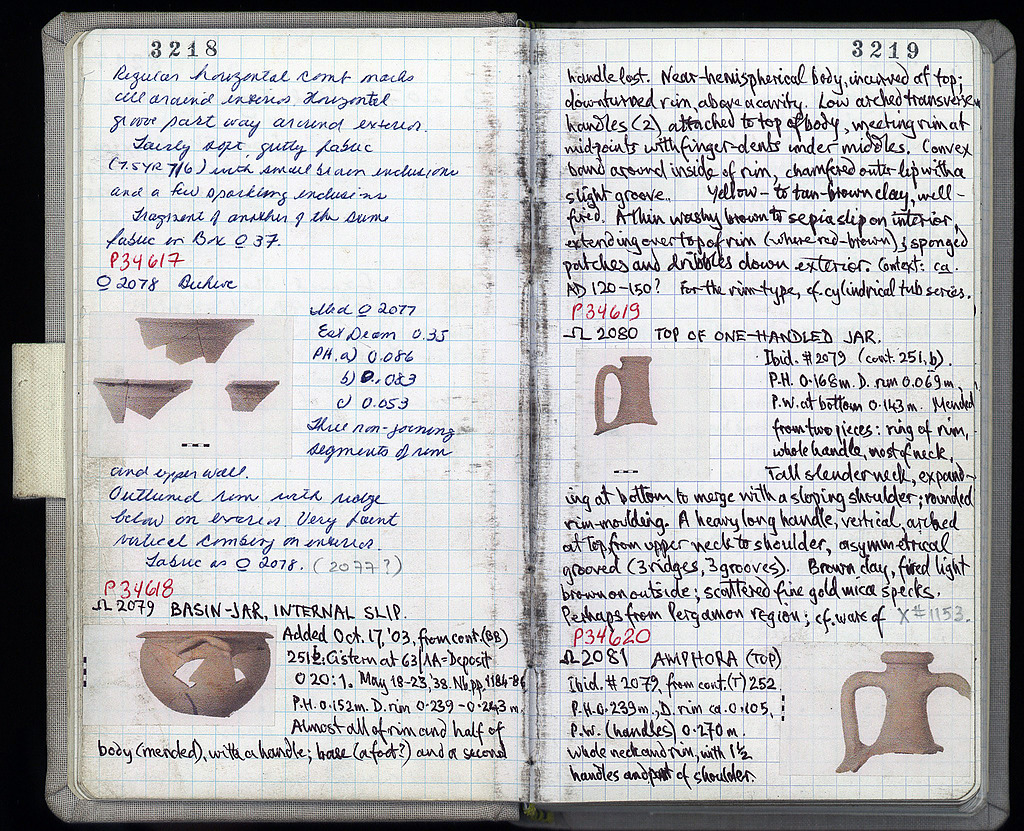 3218
Regular horizontal comb marks
all around exterior. Horizontal
groove part way around exterior.
Fairly soft gritty fabric
(7.5YR 7/6) with small brown inclusions
and a few sparkling inclusions
Fragment of another of the same
fabric in Box Ω 37.
P34617
Ω 2078 Beehive
Ibid Ω 2077
Est Diam 0.35
PH. a) 0.086
b) 0.083
c) 0.053
Three non-joining
segments of rim
and upper wall.
Outturned rim with ridge
below on exterior. Very faint
vertical combing on interior.
Fabric as Ω 2078. (2077?)
P34618
Ω 2079 BASIN-JAR, INTERNAL SLIP.
Added Oct. 17, '03, from cont. (BB)
251b: Cistern at 63/ΛΑ = Deposit
O 20:1. May 18-23, 38. Nb. pp. 1184-86
P.H. 0.152m. D. rim 0.239-0.243 m.
Almost all of rim and half of
body (mended), with a handle; base (a foot?) and a second
3219
handle lost. Near-hemispherical body, incurved at top;
downturned rim, above a cavity. Low arched transverse
handles (2), attached to top of body, meeting rim at
midpoints with finger-dents under middles. Convex
band around inside of rim, chamfered outer lip with a
slight groove. Yellow- to tan-brown clay, well-
fired. A thin washy brown to sepia slip on interior,
extending over top of rim (where red-brown); sponged
patches and dribbles down exterior. Context: ca.
AD 120-150? For the rim-type, cf. cylindrical tub series.
P34619
Ω 2080 TOP OF ONE-HANDLED JAR.
Ibid. #2079 (cont. 251, b).
P.H. 0.168m. D. rim 0.069m.
P.W. at bottom 0.143m. Mended
from two pieces: ring of rim,
whole handle, most of neck.
Tall slender neck, expand-
ing at bottom to merge with a sloping shoulder; rounded
rim-moulding. A heavy long handle, vertical, arched
at top, from upper neck to shoulder, asymmetrical
grooved (3 ridges, 3 grooves). Brown clay, fired light
brown on outside; scattered fine gold mica specks.
Perhaps from Pergamon region; cf. ware of X #1153.
P34620
Ω 2081 AMPHORA (TOP)
Ibid. #2079, from cont. (T) 252
P.H. 0.239m., D. rim ca. 0.105,
P.W. (handles) 0.270 m.
whole neck and rim, with 1½
handles and part of shoulder.